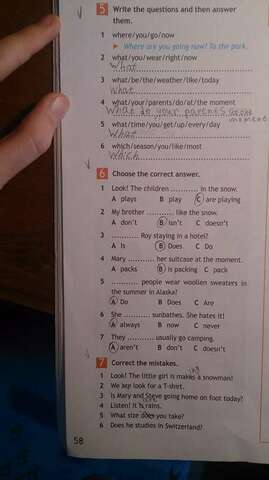 5 Write the questions and then answer
them.
1 where/you/go/now
▶ Where are you going now? To the park.
2 what/you/wear/right/now
What
3 what/be/the/weather/like/today
What
4 what/your/parents/do/at/the moment
What do your parents do the
moment
5 what/time/you/get/up/every/day
What
6 which/season/you/like/most
Which
6 Choose the correct answer.
1 Look! The children .......... in the snow.
A plays B play C are playing
2 My brother .......... like the snow.
A don't B isn't C doesn't
3 .......... Roy staying in a hotel?
A Is B Does C Do
4 Mary .......... her suitcase at the moment.
A packs B is packing C pack
5 .......... people wear woollen sweaters in
the summer in Alaska?
A Do B Does C Are
6 She .......... sunbathes. She hates it!
A always B now C never
7 They .......... usually go camping.
A aren't B don't C doesn't
7 Correct the mistakes.
ing
1 Look! The little girl is makes a snowman!
2 We look for a T-shirt.
3 Is Mary and Steve going home on foot today?
4 Listen! It is rains.
5 What size does you take?
6 Does he studies in Switzerland?
58